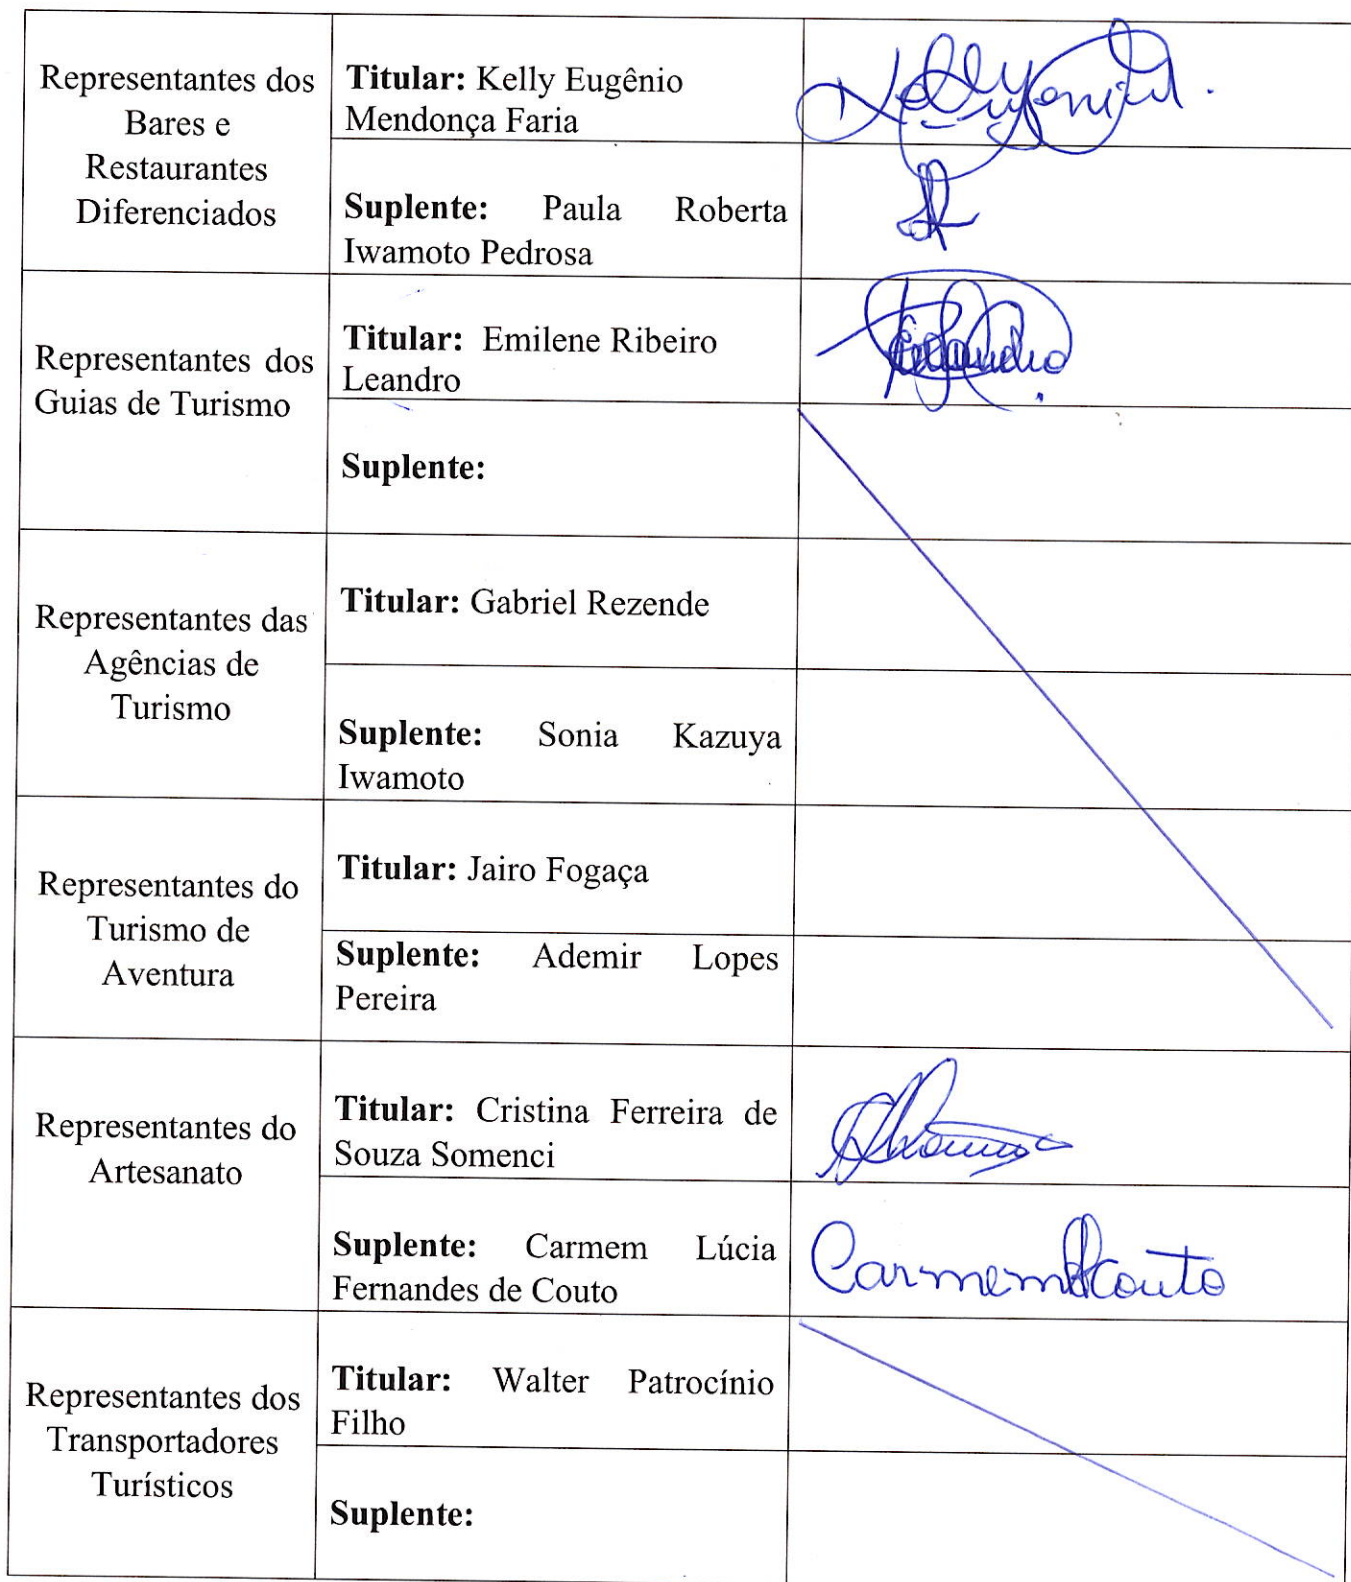 Representantes dos
Bares e
Restaurantes
Diferenciados
Titular: Kelly Eugênio
Mendonça Faria
Suplente: Paula Roberta
Iwamoto Pedrosa
Representantes dos
Guias de Turismo
Titular: Emilene Ribeiro
Leandro
Suplente:
Representantes das
Agências de
Turismo
Titular: Gabriel Rezende
Suplente: Sonia Kazuya
Iwamoto
Representantes do
Turismo de
Aventura
Titular: Jairo Fogaça
Suplente: Ademir Lopes
Pereira
Representantes do
Artesanato
Titular: Cristina Ferreira de
Souza Somenci
Suplente: Carmem Lúcia
Fernandes de Couto
Carmem Couto
Representantes dos
Transportadores
Turísticos
Titular: Walter Patrocínio
Filho
Suplente: